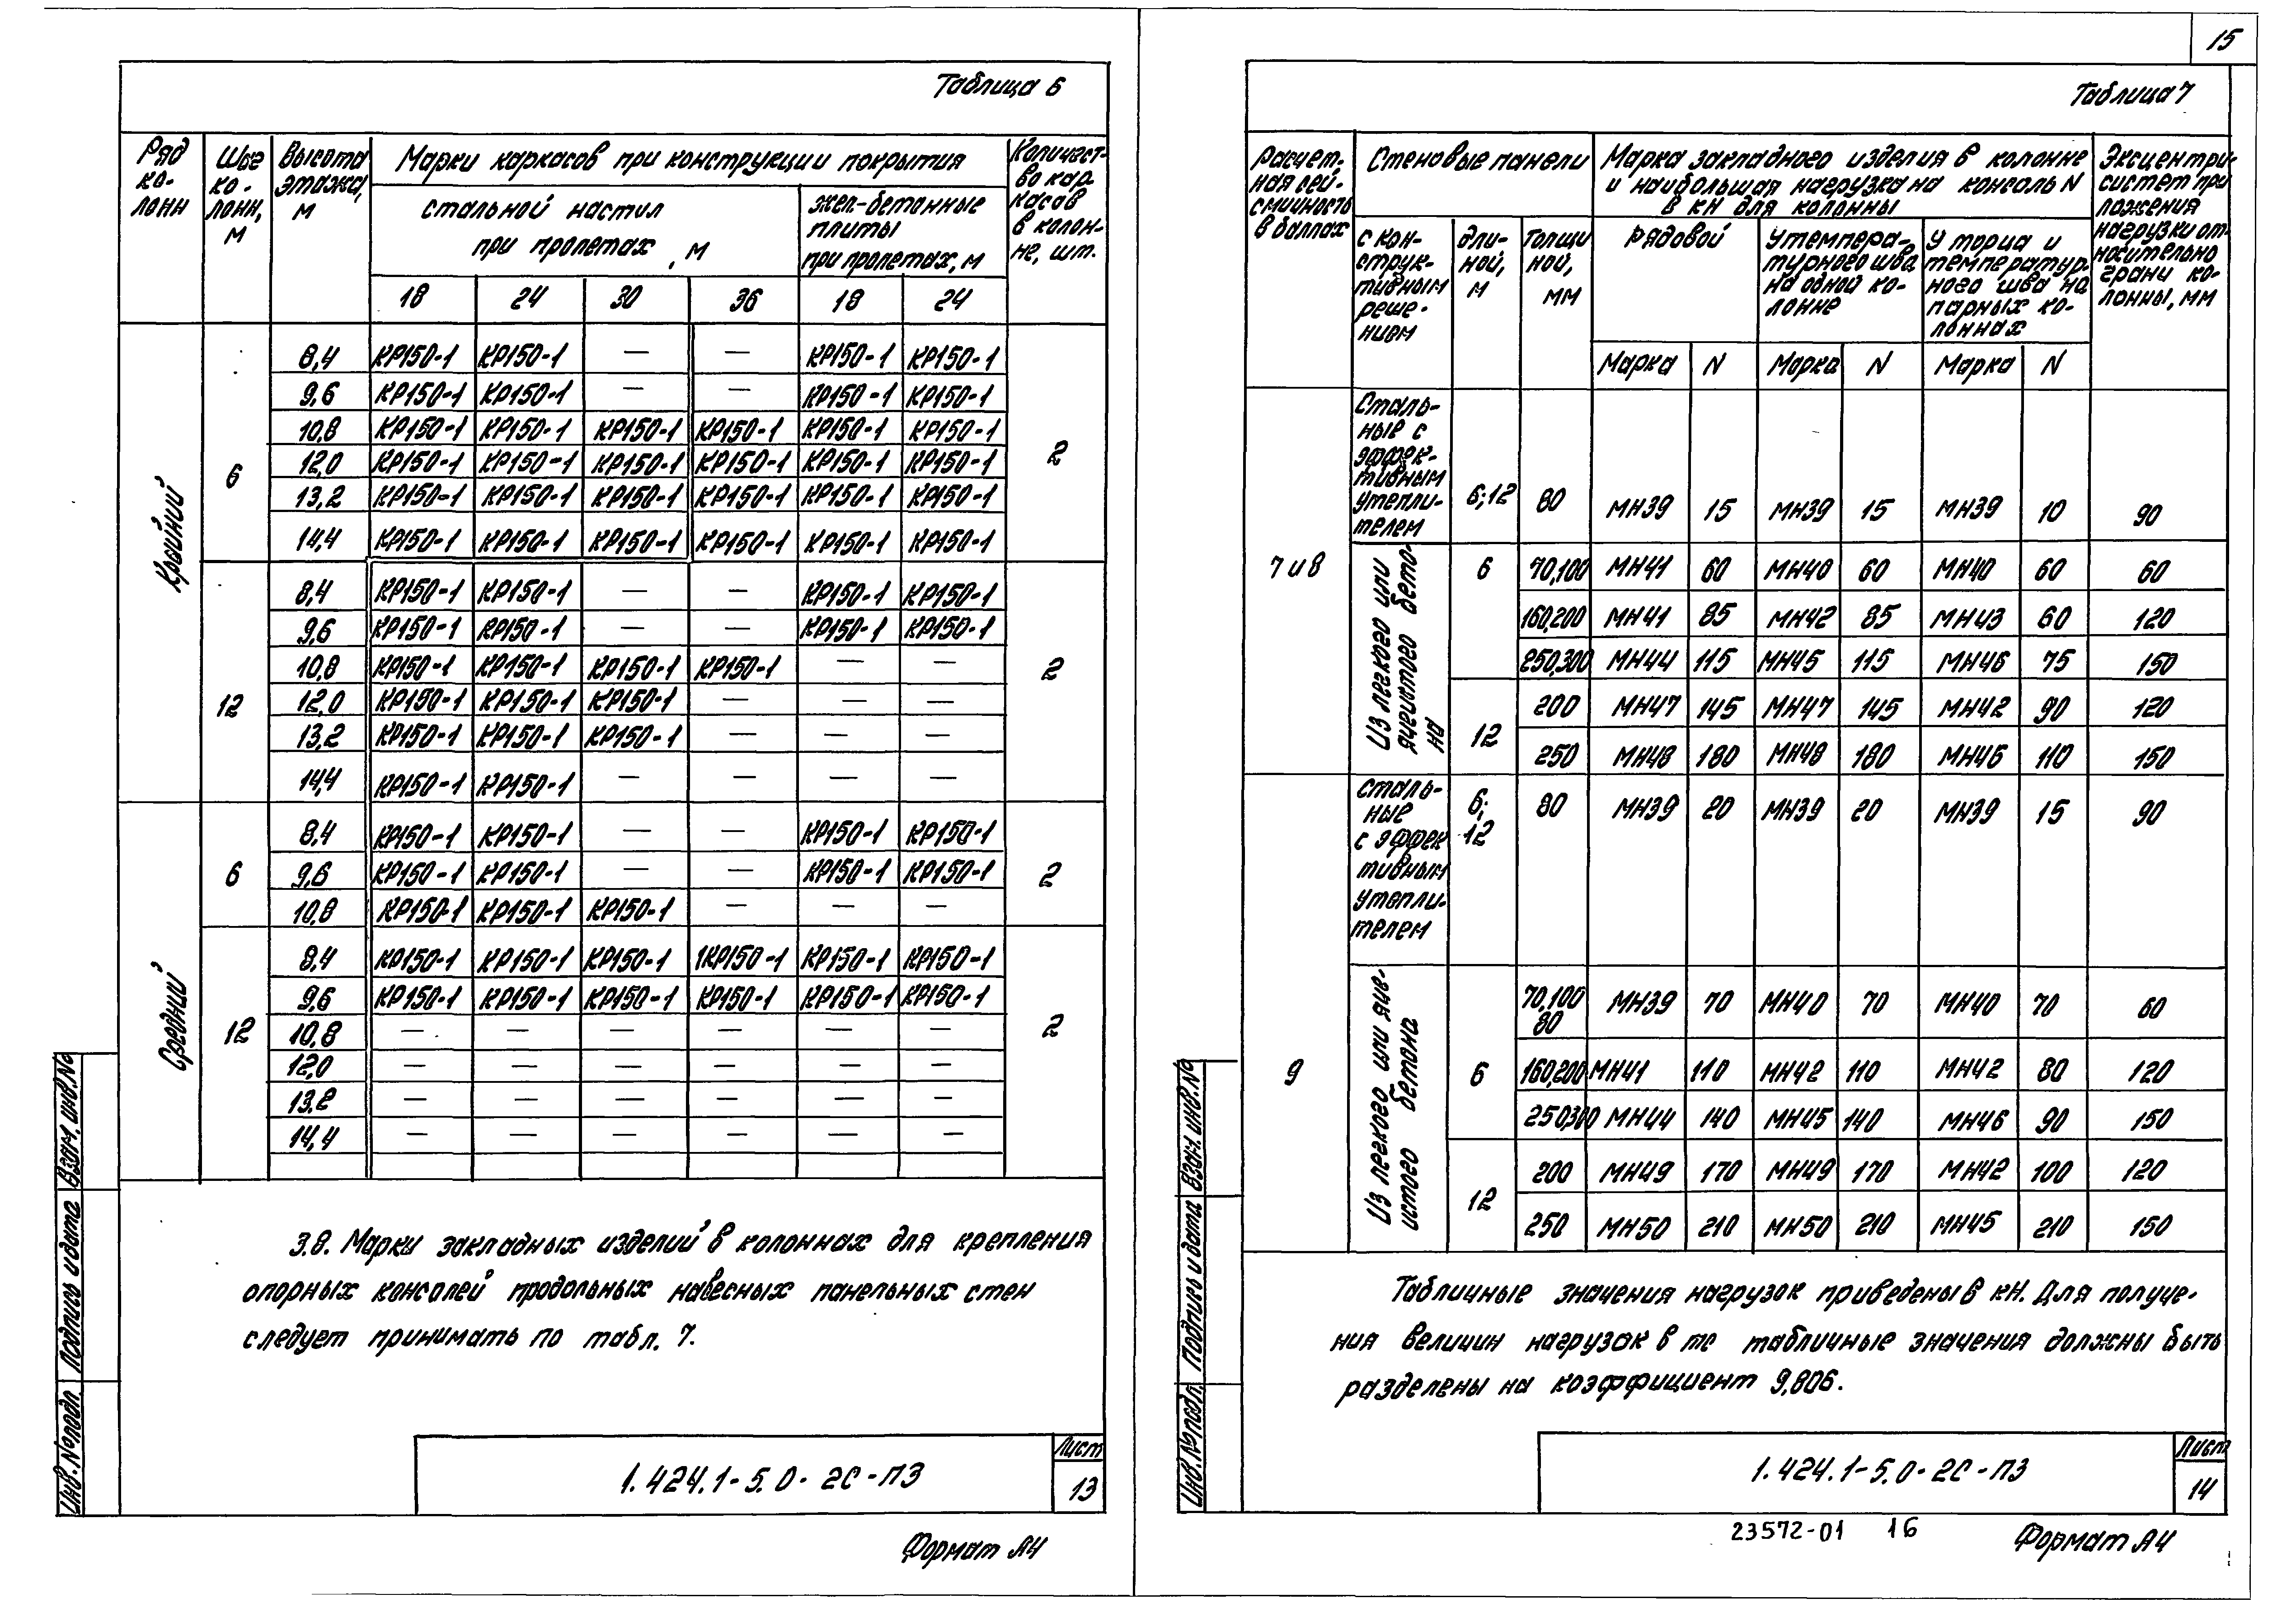 15
Таблица 6
Ряд ко- лонн
Шаг ко- лонн, м
Высота этажа, м
Марки каркасов при конструкции покрытия
Количест- во кар- касов в колон- не, шт.
стальной настил при пролетах, м
жел-бетонные плиты при пролетах, м
18 24 30 36 18 24
Крайний
6
8,4 КР150-1 КР150-1 — — КР150-1 КР150-1
9,6 КР150-1 КР150-1 — — КР150-1 КР150-1
10,8 КР150-1 КР150-1 КР150-1 КР150-1 КР150-1 КР150-1
12,0 КР150-1 КР150-1 КР150-1 КР150-1 КР150-1 КР150-1
13,2 КР150-1 КР150-1 КР150-1 КР150-1 КР150-1 КР150-1
14,4 КР150-1 КР150-1 КР150-1 КР150-1 КР150-1 КР150-1
2
12
8,4 КР150-1 КР150-1 — — КР150-1 КР150-1
9,6 КР150-1 КР150-1 — — КР150-1 КР150-1
10,8 КР150-1 КР150-1 КР150-1 КР150-1 — —
12,0 КР150-1 КР150-1 КР150-1 — — —
13,2 КР150-1 КР150-1 КР150-1 — — —
14,4 КР150-1 КР150-1 — — — —
2
Средний
6
8,4 КР150-1 КР150-1 — — КР150-1 КР150-1
9,6 КР150-1 КР150-1 — — КР150-1 КР150-1
10,8 КР150-1 КР150-1 КР150-1 — — —
2
12
8,4 КР150-1 КР150-1 КР150-1 1КР150-1 КР150-1 КР150-1
9,6 КР150-1 КР150-1 КР150-1 КР150-1 КР150-1 КР150-1
10,8 — — — — — —
12,0 — — — — — —
13,2 — — — — — —
14,4 — — — — — —
2
3.8. Марки закладных изделий в колоннах для крепления
опорных консолей продольных навесных панельных стен
следует принимать по табл. 7.
Инв. № подл. Подпись и дата Взам. инв. №
1.424.1-5.0-2С-ПЗ
Лист
13
Формат А4
Таблица 7
Расчет- ная сей- смичность в баллах
Стеновые панели
Марка закладного изделия в колонне и наибольшая нагрузка на консоль N в кН для колонны
Эксцентри- систет при ложения нагрузки от- носительно грани ко- лонны, мм
с кон- струк- тивным реше- нием
дли- ной, м
толщи ной, мм
рядовой
У темпера- турного шва на одной ко- лонне
У торца и температур- ного шва на парных ко- лоннах
Марка N Марка N Марка N
7 и 8
Сталь- ные с эффек- тивным утепли- телем
6;12 80 МН39 15 МН39 15 МН39 10 90
Из легкого или ячеистого бето- на
6 70,100 МН41 60 МН40 60 МН40 60 60
160,200 МН41 85 МН42 85 МН43 60 120
250,300 МН44 115 МН45 115 МН46 75 150
12 200 МН47 145 МН47 145 МН42 90 120
250 МН48 180 МН48 180 МН46 110 150
9
Сталь- ные с эффек тивным утепли- телем
6; 12 80 МН39 20 МН39 20 МН39 15 90
Из легкого или яче- истого бетона
6 70,100 80 МН39 70 МН40 70 МН40 70 60
160,200 МН41 110 МН42 110 МН42 80 120
250,300 МН44 140 МН45 140 МН46 90 150
12 200 МН49 170 МН49 170 МН42 100 120
250 МН50 210 МН50 210 МН45 210 150
Табличные значения нагрузок приведены в кН. Для получе-
ния величин нагрузок в тс табличные значения должны быть
разделены на коэффициент 9,806.
Инв. № подл. Подпись и дата Взам. инв. №
1.424.1-5.0-2С-ПЗ
Лист
14
23572-01 16
Формат А4